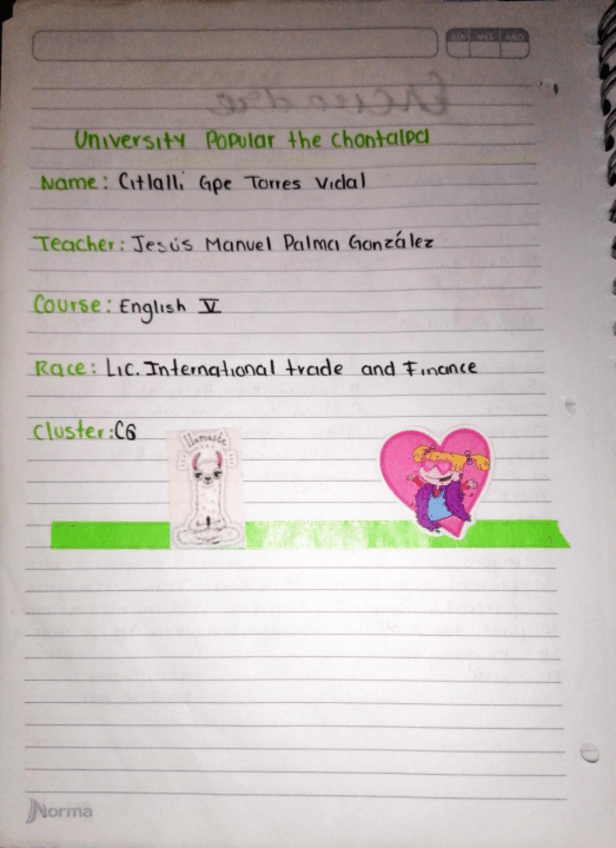 DÍA MES AÑO
University Popular the Chontalpa
Name: Citlalli Gpe Torres Vidal
Teacher: Jesús Manuel Palma González
Course: English V
Race: Lic. International trade and Finance
Cluster: C6
llamaste
Norma